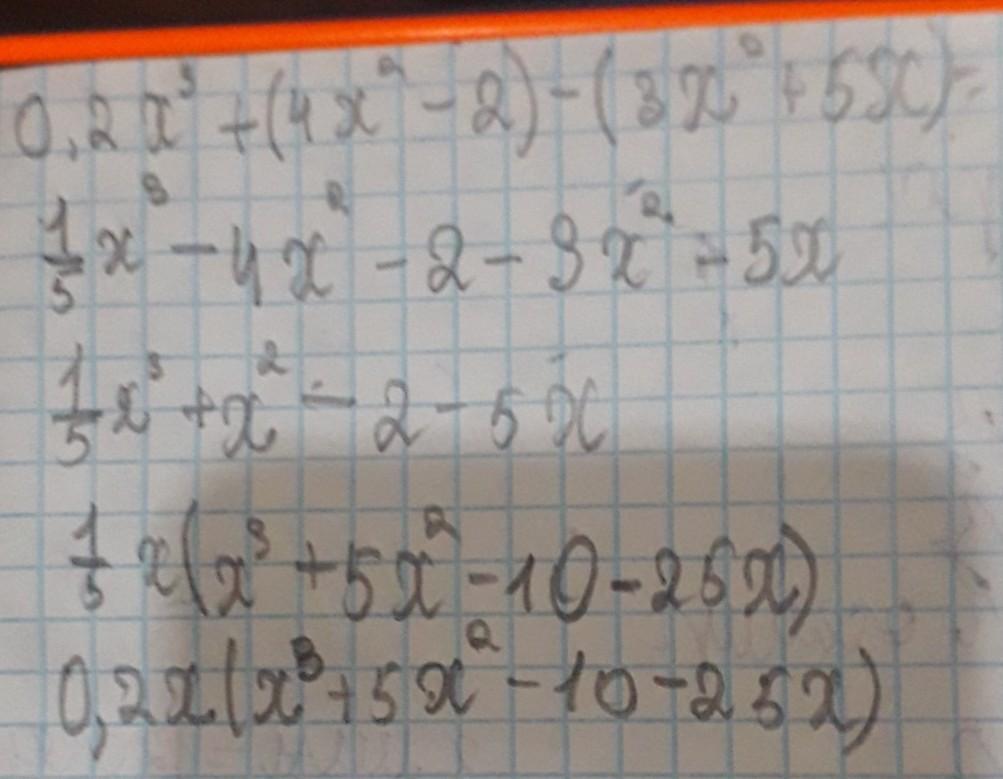 0,2x³+(4x²-2)-(3x²+5x)=
1/5x³-4x²-2-3x²-5x
1/5x³+x²-2-5x
1/5x(x³+5x²-10-25x)
0,2x(x³+5x²-10-25x)